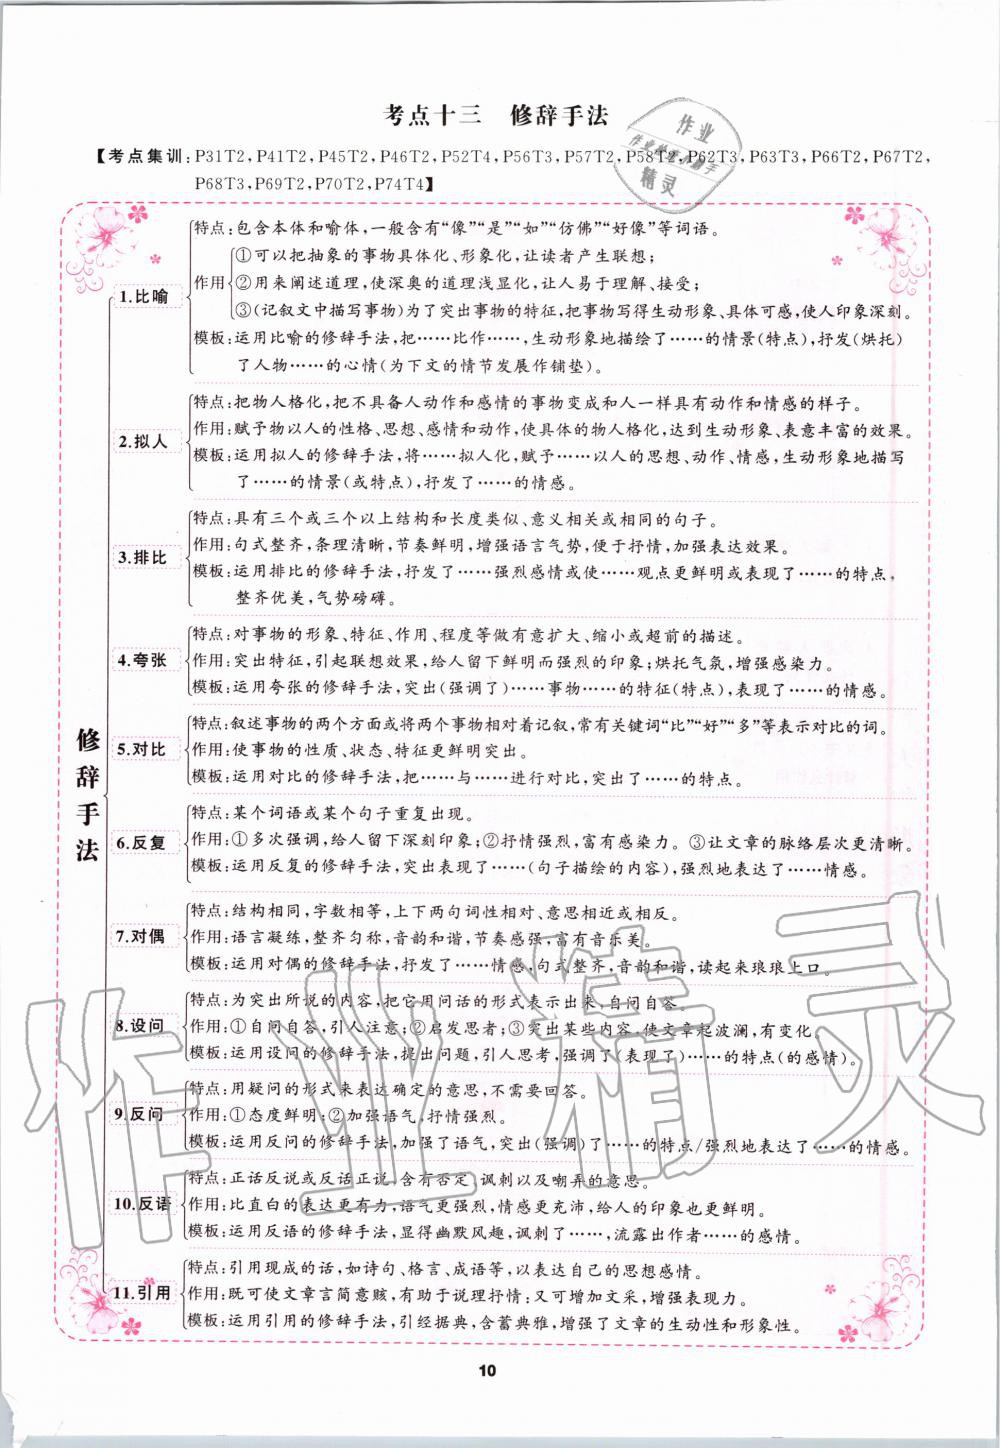 考点十三　修辞手法
【考点集训:P31T2,P41T2,P45T2,P46T2,P52T4,P56T3,P57T2,P58T4,P62T3,P63T3,P66T2,P67T2,
P68T3,P69T2,P70T2,P74T4】
修辞手法
1.比喻
特点:包含本体和喻体,一般含有“像”“是”“如”“仿佛”“好像”等词语。
作用
①可以把抽象的事物具体化、形象化,让读者产生联想;
②用来阐述道理,使深奥的道理浅显化,让人易于理解、接受;
③(记叙文中描写事物)为了突出事物的特征,把事物写得生动形象、具体可感,使人印象深刻。
模板:运用比喻的修辞手法,把……比作……,生动形象地描绘了……的情景(特点),抒发(烘托)
了人物……的心情(为下文的情节发展作铺垫)。
2.拟人
特点:把物人格化,把不具备人动作和感情的事物变成和人一样具有动作和情感的样子。
作用:赋予物以人的性格、思想、感情和动作,使具体的物人格化,达到生动形象、表意丰富的效果。
模板:运用拟人的修辞手法,将……拟人化,赋予……以人的思想、动作、情感,生动形象地描写
了……的情景(或特点),抒发了……的情感。
3.排比
特点:具有三个或三个以上结构和长度类似、意义相关或相同的句子。
作用:句式整齐,条理清晰,节奏鲜明,增强语言气势,便于抒情,加强表达效果。
模板:运用排比的修辞手法,抒发了……强烈感情或使……观点更鲜明或表现了……的特点,
整齐优美,气势磅礴。
4.夸张
特点:对事物的形象、特征、作用、程度等做有意扩大、缩小或超前的描述。
作用:突出特征,引起联想效果,给人留下鲜明而强烈的印象;烘托气氛,增强感染力。
模板:运用夸张的修辞手法,突出(强调了)……事物……的特征(特点),表现了……的情感。
5.对比
特点:叙述事物的两个方面或将两个事物相对着记叙,常有关键词“比”“好”“多”等表示对比的词。
作用:使事物的性质、状态、特征更鲜明突出。
模板:运用对比的修辞手法,把……与……进行对比,突出了……的特点。
6.反复
特点:某个词语或某个句子重复出现。
作用:①多次强调,给人留下深刻印象;②抒情强烈,富有感染力。③让文章的脉络层次更清晰。
模板:运用反复的修辞手法,突出表现了……(句子描绘的内容),强烈地表达了……的情感。
7.对偶
特点:结构相同,字数相等,上下两句词性相对、意思相近或相反。
作用:语言凝练,整齐匀称,音韵和谐,节奏感强,富有音乐美。
模板:运用对偶的修辞手法,抒发了……情感,句式整齐,音韵和谐,读起来琅琅上口。
8.设问
特点:为突出所说的内容,把它用问话的形式表示出来,自问自答。
作用:①自问自答,引人注意;②启发思考;③突出某些内容,使文章起波澜,有变化。
模板:运用设问的修辞手法,提出问题,引人思考,强调了(表现了)……的特点(的感情)。
9.反问
特点:用疑问的形式来表达确定的意思,不需要回答。
作用:①态度鲜明;②加强语气,抒情强烈。
模板:运用反问的修辞手法,加强了语气,突出(强调)了……的特点/强烈地表达了……的情感。
10.反语
特点:正话反说或反话正说,含有否定、讽刺以及嘲弄的意思。
作用:比直白的表达更有力,语气更强烈,情感更充沛,给人的印象也更鲜明。
模板:运用反语的修辞手法,显得幽默风趣,讽刺了……,流露出作者……的情感。
11.引用
特点:引用现成的话,如诗句、格言、成语等,以表达自己的思想感情。
作用:既可使文章言简意赅,有助于说理抒情;又可增加文采,增强表现力。
模板:运用引用的修辞手法,引经据典,含蓄典雅,增强了文章的生动性和形象性。
10
作业精灵
作业
精灵